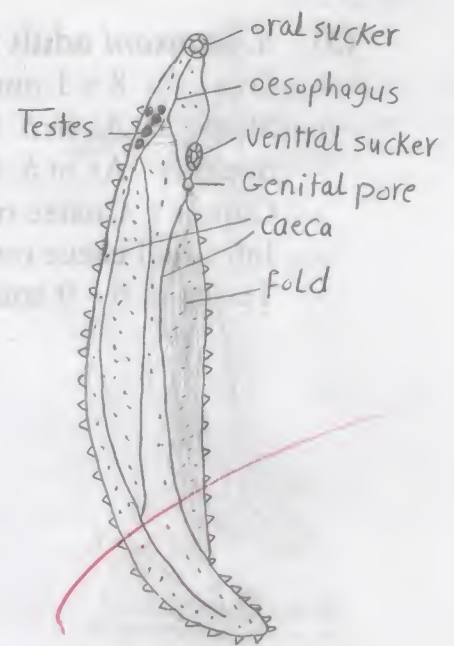 oral sucker
oesophagus
Testes
Ventral sucker
Genital pore
Caeca
fold